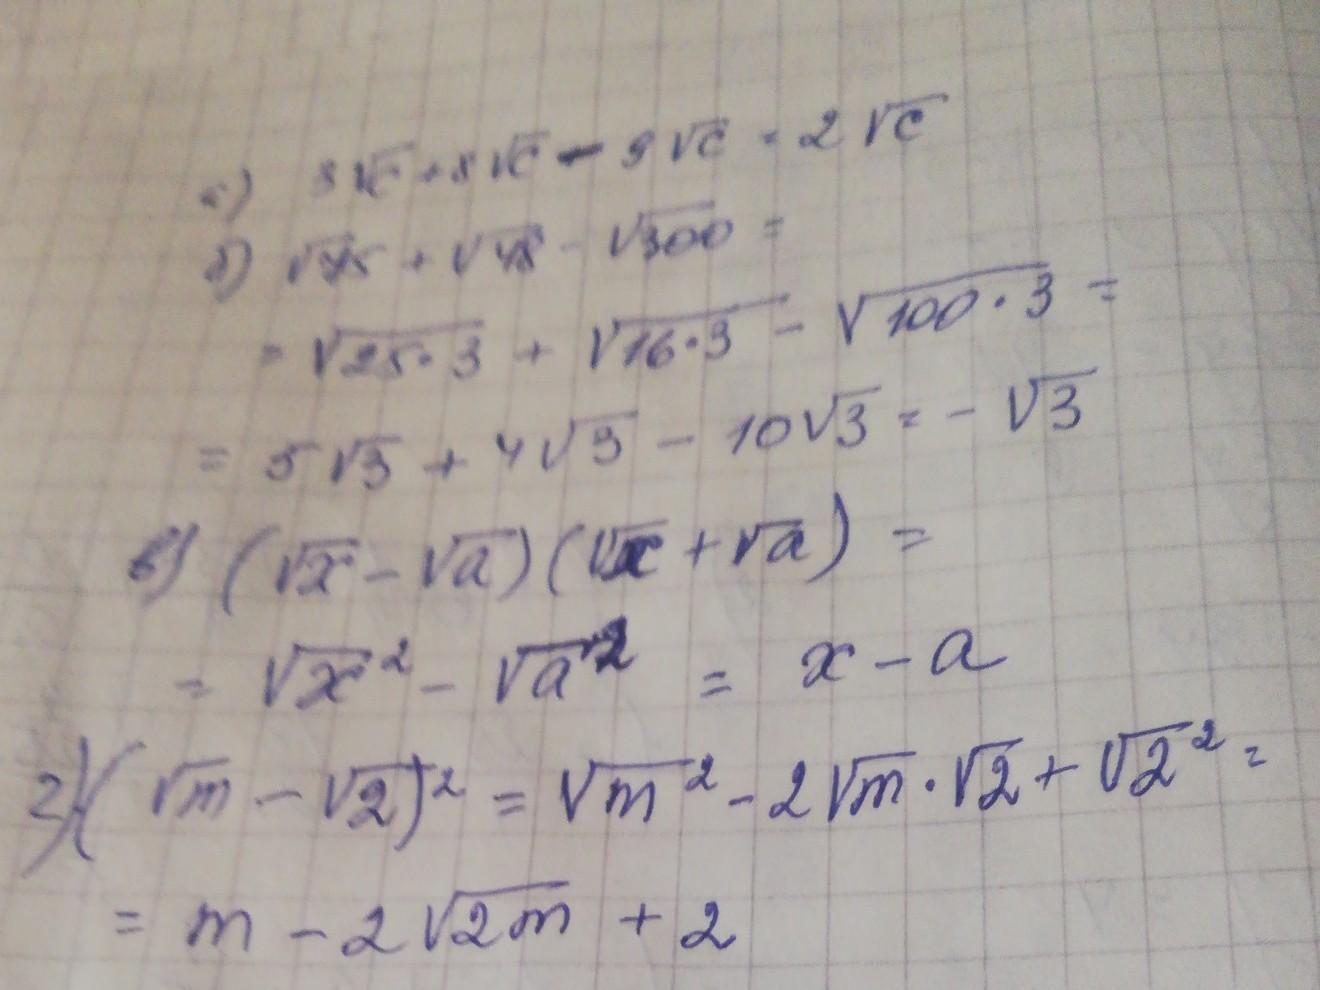 а) 3√c + 8√c - 9√c = 2√c
б) √75 + √48 - √300 =
= √25·3 + √16·3 - √100·3 =
= 5√3 + 4√3 - 10√3 = -√3
в) (√x - √a)(√x + √a) =
= √x² - √a² = x - a
г) (√m - √2)² = √m² - 2√m·√2 + √2² =
= m - 2√2m + 2